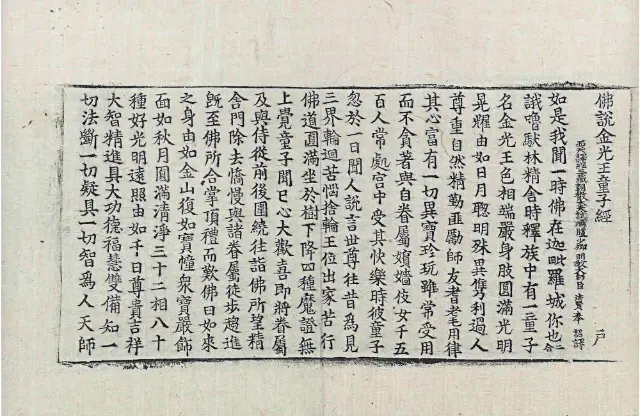 佛說金光王童子經 戶
西天譯經三藏朝散大夫試鴻臚少卿明教大師臣法賢奉 詔譯
如是我聞一時佛在迦毗羅城你也二合
誐嚕馱林精舍時釋族中有一童子
名金光王色相端嚴身肢圓滿光明
晃耀由如日月聦明殊異儁利過人
尊重自然精勤匪勵師友耆老毛用律
其心富有一切異寶珍玩雖常受用
而不貪著與自眷屬婚嬙伎女千五
百人常𠁅宮中受其快樂時彼童子
忽於一日聞人說言世尊往昔爲見
三界輪迴苦惱捨輪王位出家苦行
佛道圓滿坐於樹下降四種魔證無
上覺童子聞已心大歡喜即將眷屬
及與侍從前後圍繞往詣佛所望精
舍門除去憍慢與諸眷屬徒步趨進
旣至佛所合掌頂禮而歎佛曰如來
之身由如金山復如寶幢衆寶嚴飾
面如秋月圓滿清淨三十二相八十
種好光明遠照由如千日尊貴吉祥
大智精進具大功德福慧雙備知一
切法斷一切疑具一切智爲人天師